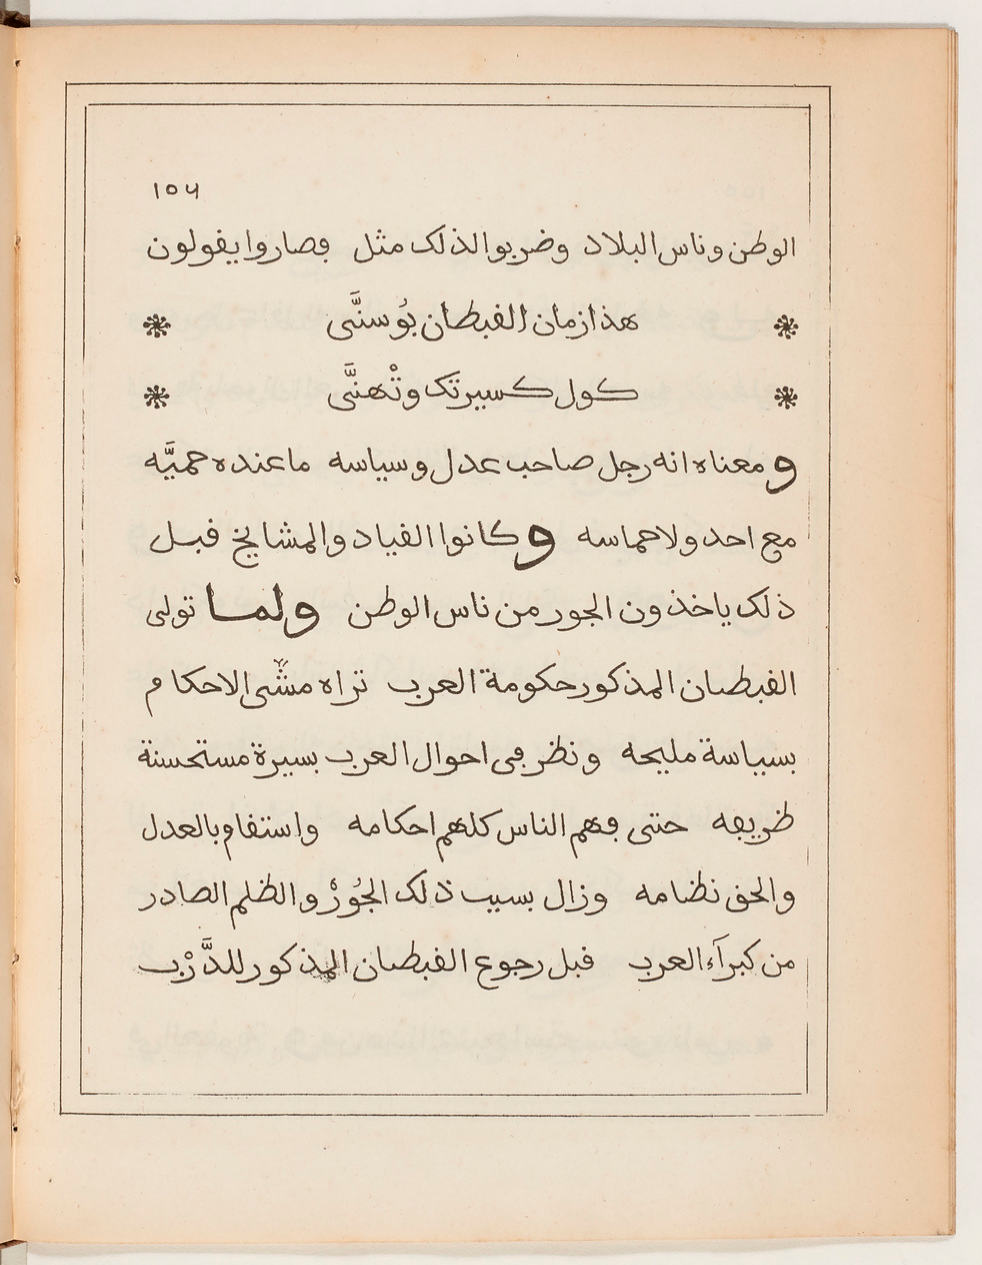 ١٥٦
الوطن وناس البلاد وضربوا لذلك مثل ڢصاروا يڧولون
* هذا زمان الڧبطان بُوسنَّى *
* كول كسيرتك وتْهنَّى *
ومعناه انه رجل صاحب عدل وسياسه ما عنده حميَّه
مع احد ولا حماسه وكانوا الڧياد والمشايخ ڧبل
ذلك ياخذون الجور من ناس الوطن ولما تولى
الڧبطان المذكور حكومة العرب تراه مشّى الاحكام
بسياسة مليحه ونظر ڢى احوال العرب بسيرة مستحسنة
ظريڢه حتى ڢهم الناس كلهم احكامه واستڧام بالعدل
والحق نظامه وزال بسبب ذلك الجُورْ والظلم الصادر
من كبرآء العرب ڧبل رجوع الڧبطان المذكور للدَّرْب